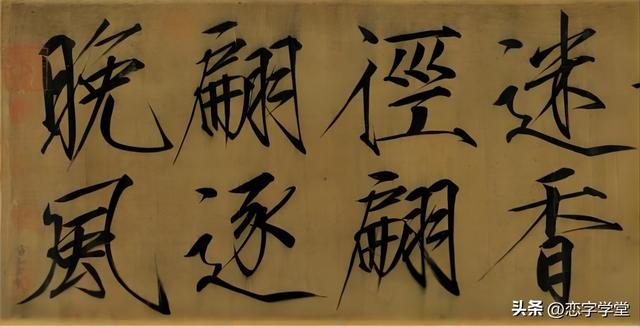 迷香
徑翩
翩逐
晚風
头条 @恋字学堂